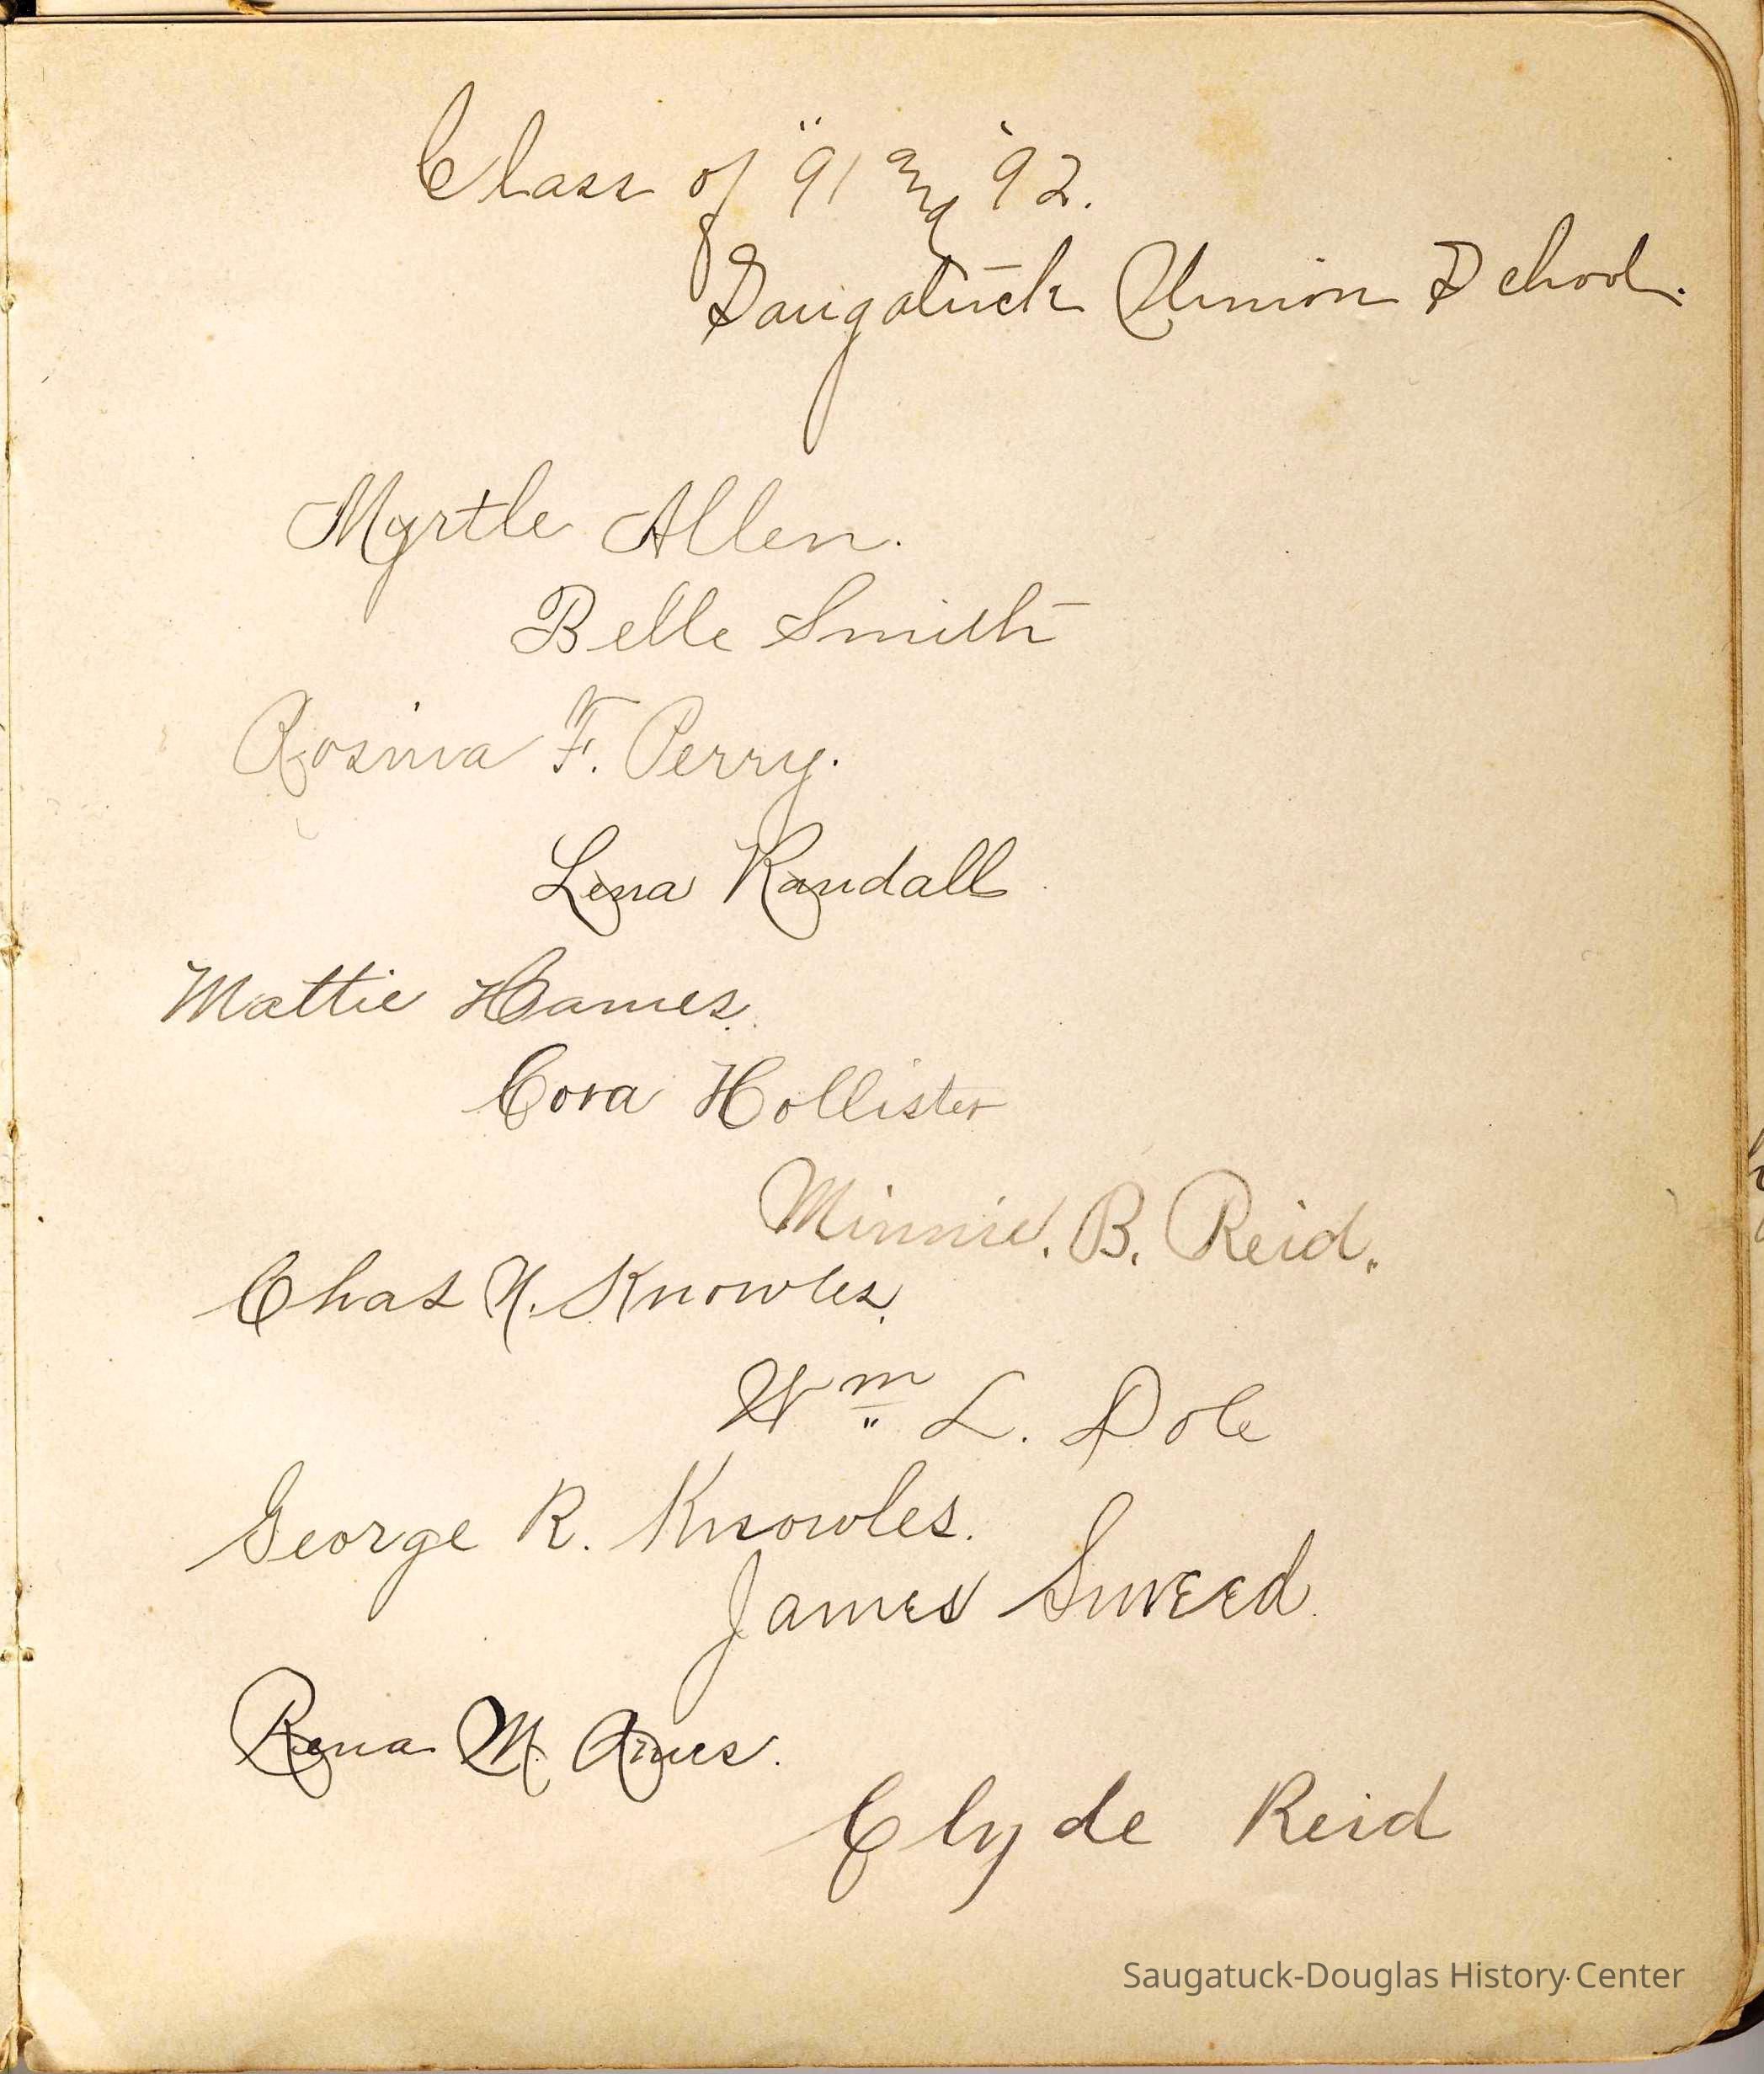 Class of "91 and '92.
Saugatuck Union School.
Myrtle Allen.
Belle Smith
Rosina F. Perry.
Lena Randall
Mattie Hames.
Cora Hollister
Minnie. B. Reid.
Chas N. Knowles.
Wm L. Dole
George R. Knowles.
James Sweed.
Rena M. Ames.
Clyde Reid
Saugatuck-Douglas History Center